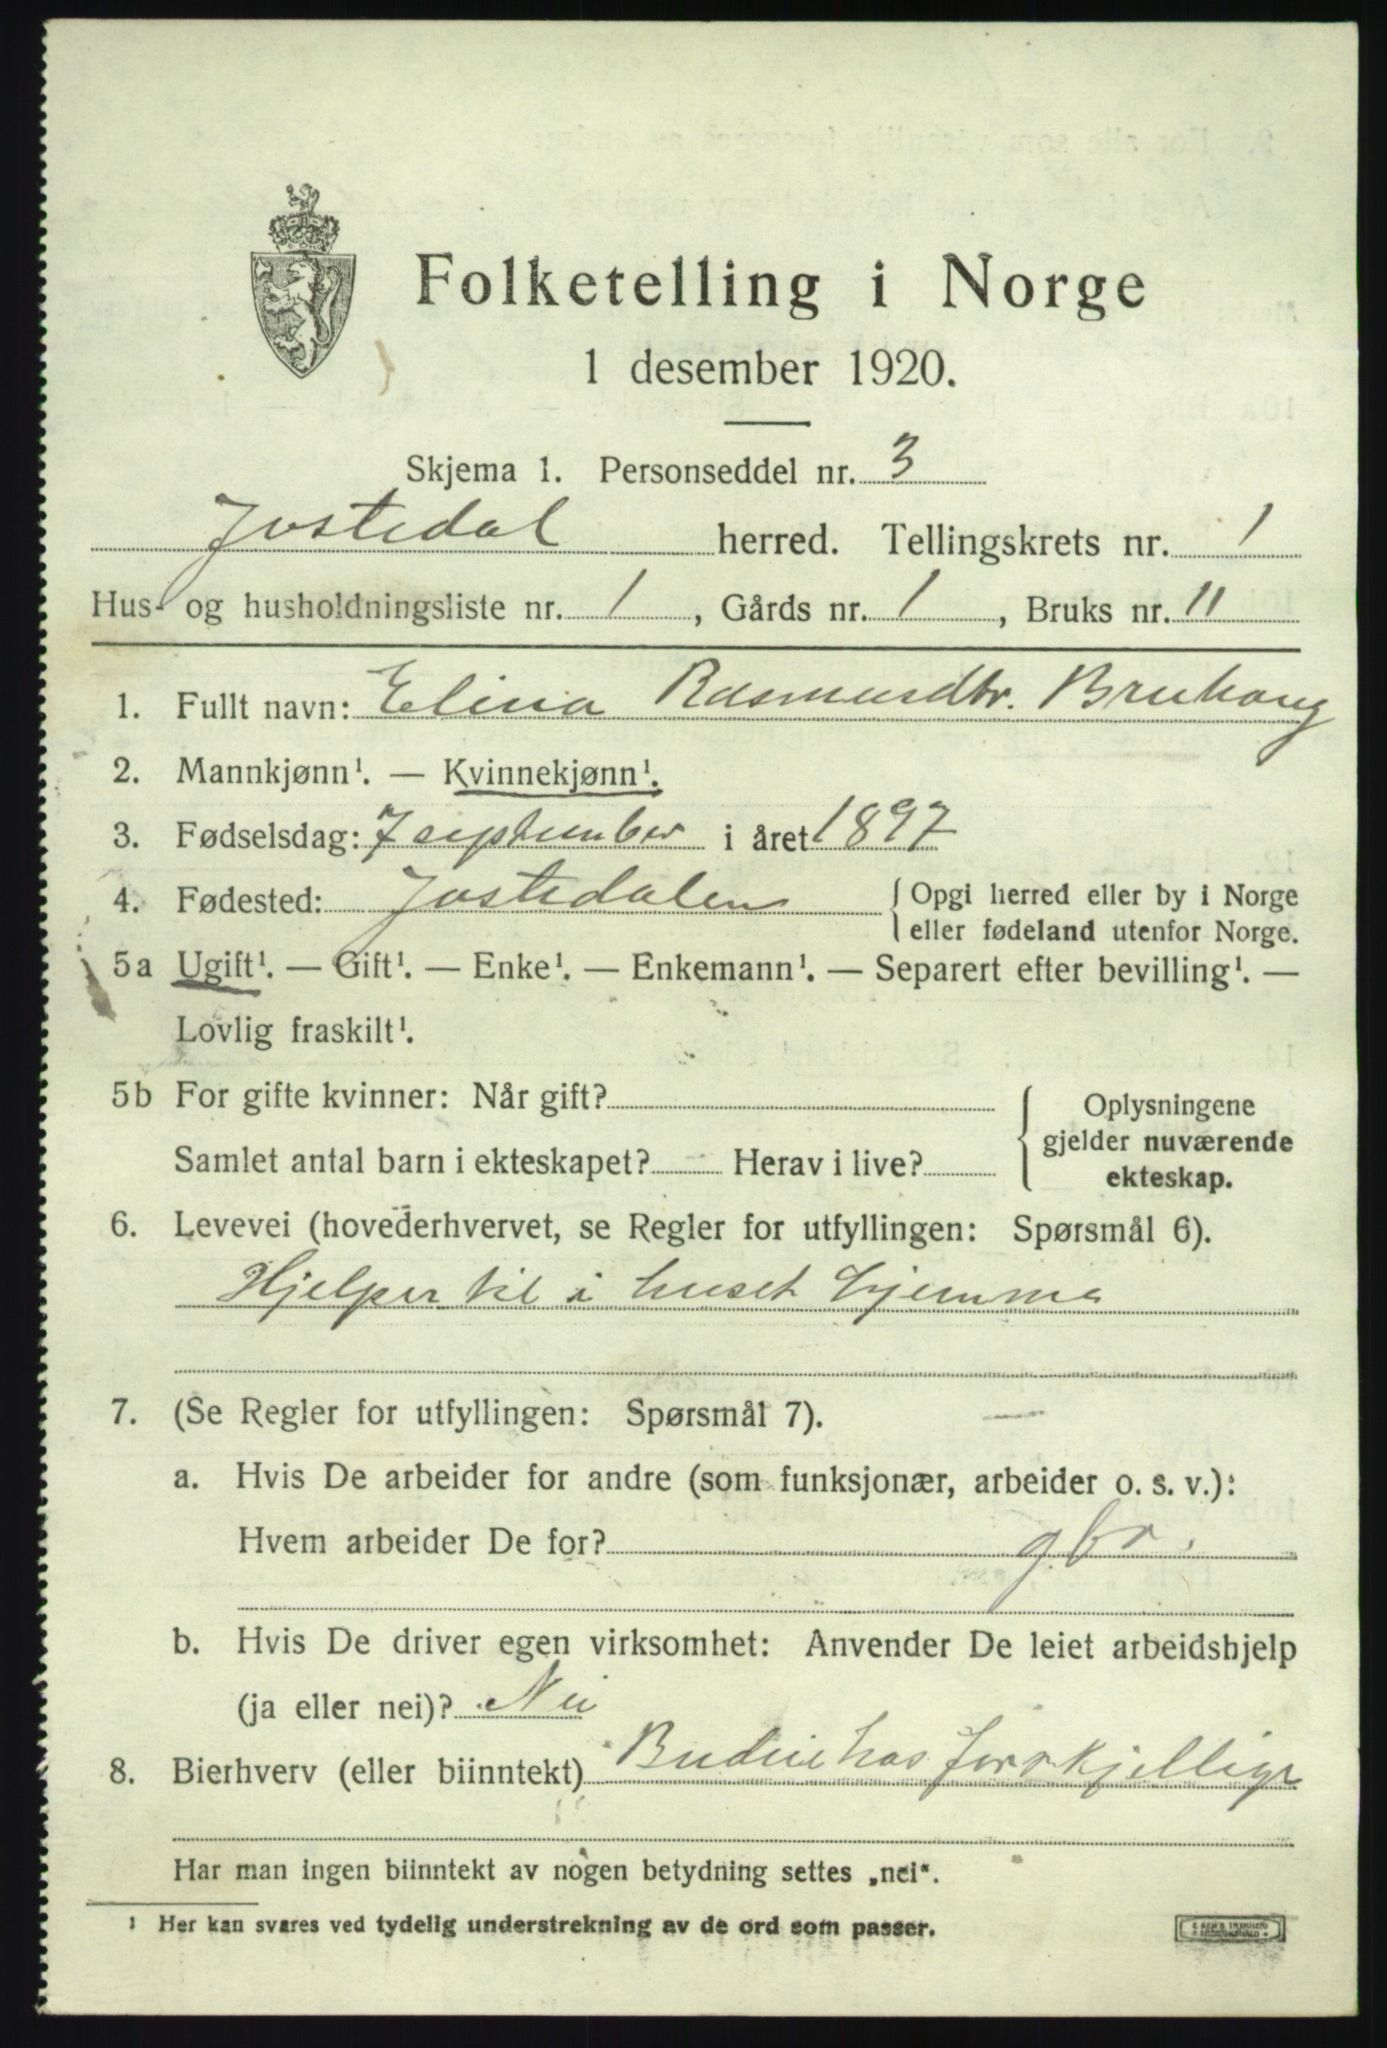 Folketelling i Norge
1 desember 1920.
Skjema 1. Personseddel nr. 3
Jostedal herred. Tellingskrets nr. 1
Hus- og husholdningsliste nr. 1, Gårds nr. 1, Bruks nr. 11
1. Fullt navn: Elina Rasmusdtr. Bruhaug
2. Mannkjønn¹. — Kvinnekjønn¹.
3. Fødselsdag: 7 september i året 1897
4. Fødested: Jostedalen { Opgi herred eller by i Norge
eller fødeland utenfor Norge.
5a Ugift¹. — Gift¹. — Enke¹. — Enkemann¹. — Separert efter bevilling¹. —
Lovlig fraskilt¹.
5b For gifte kvinner: Når gift? { Oplysningene
gjelder nuværende
Samlet antal barn i ekteskapet? Herav i live?
ekteskap.
6. Levevei (hovederhvervet, se Regler for utfyllingen: Spørsmål 6).
Hjelper til i huset hjemme
7. (Se Regler for utfyllingen: Spørsmål 7). —
a. Hvis De arbeider for andre (som funksjonær, arbeider o. s. v.):
Hvem arbeider De for? gbr.
b. Hvis De driver egen virksomhet: Anvender De leiet arbeidshjelp
(ja eller nei)? Nei
8. Bierhverv (eller biinntekt) Budeie hos forskjellige
Har man ingen biinntekt av nogen betydning settes „nei“.
¹ Her kan svares ved tydelig understrekning av de ord som passer.